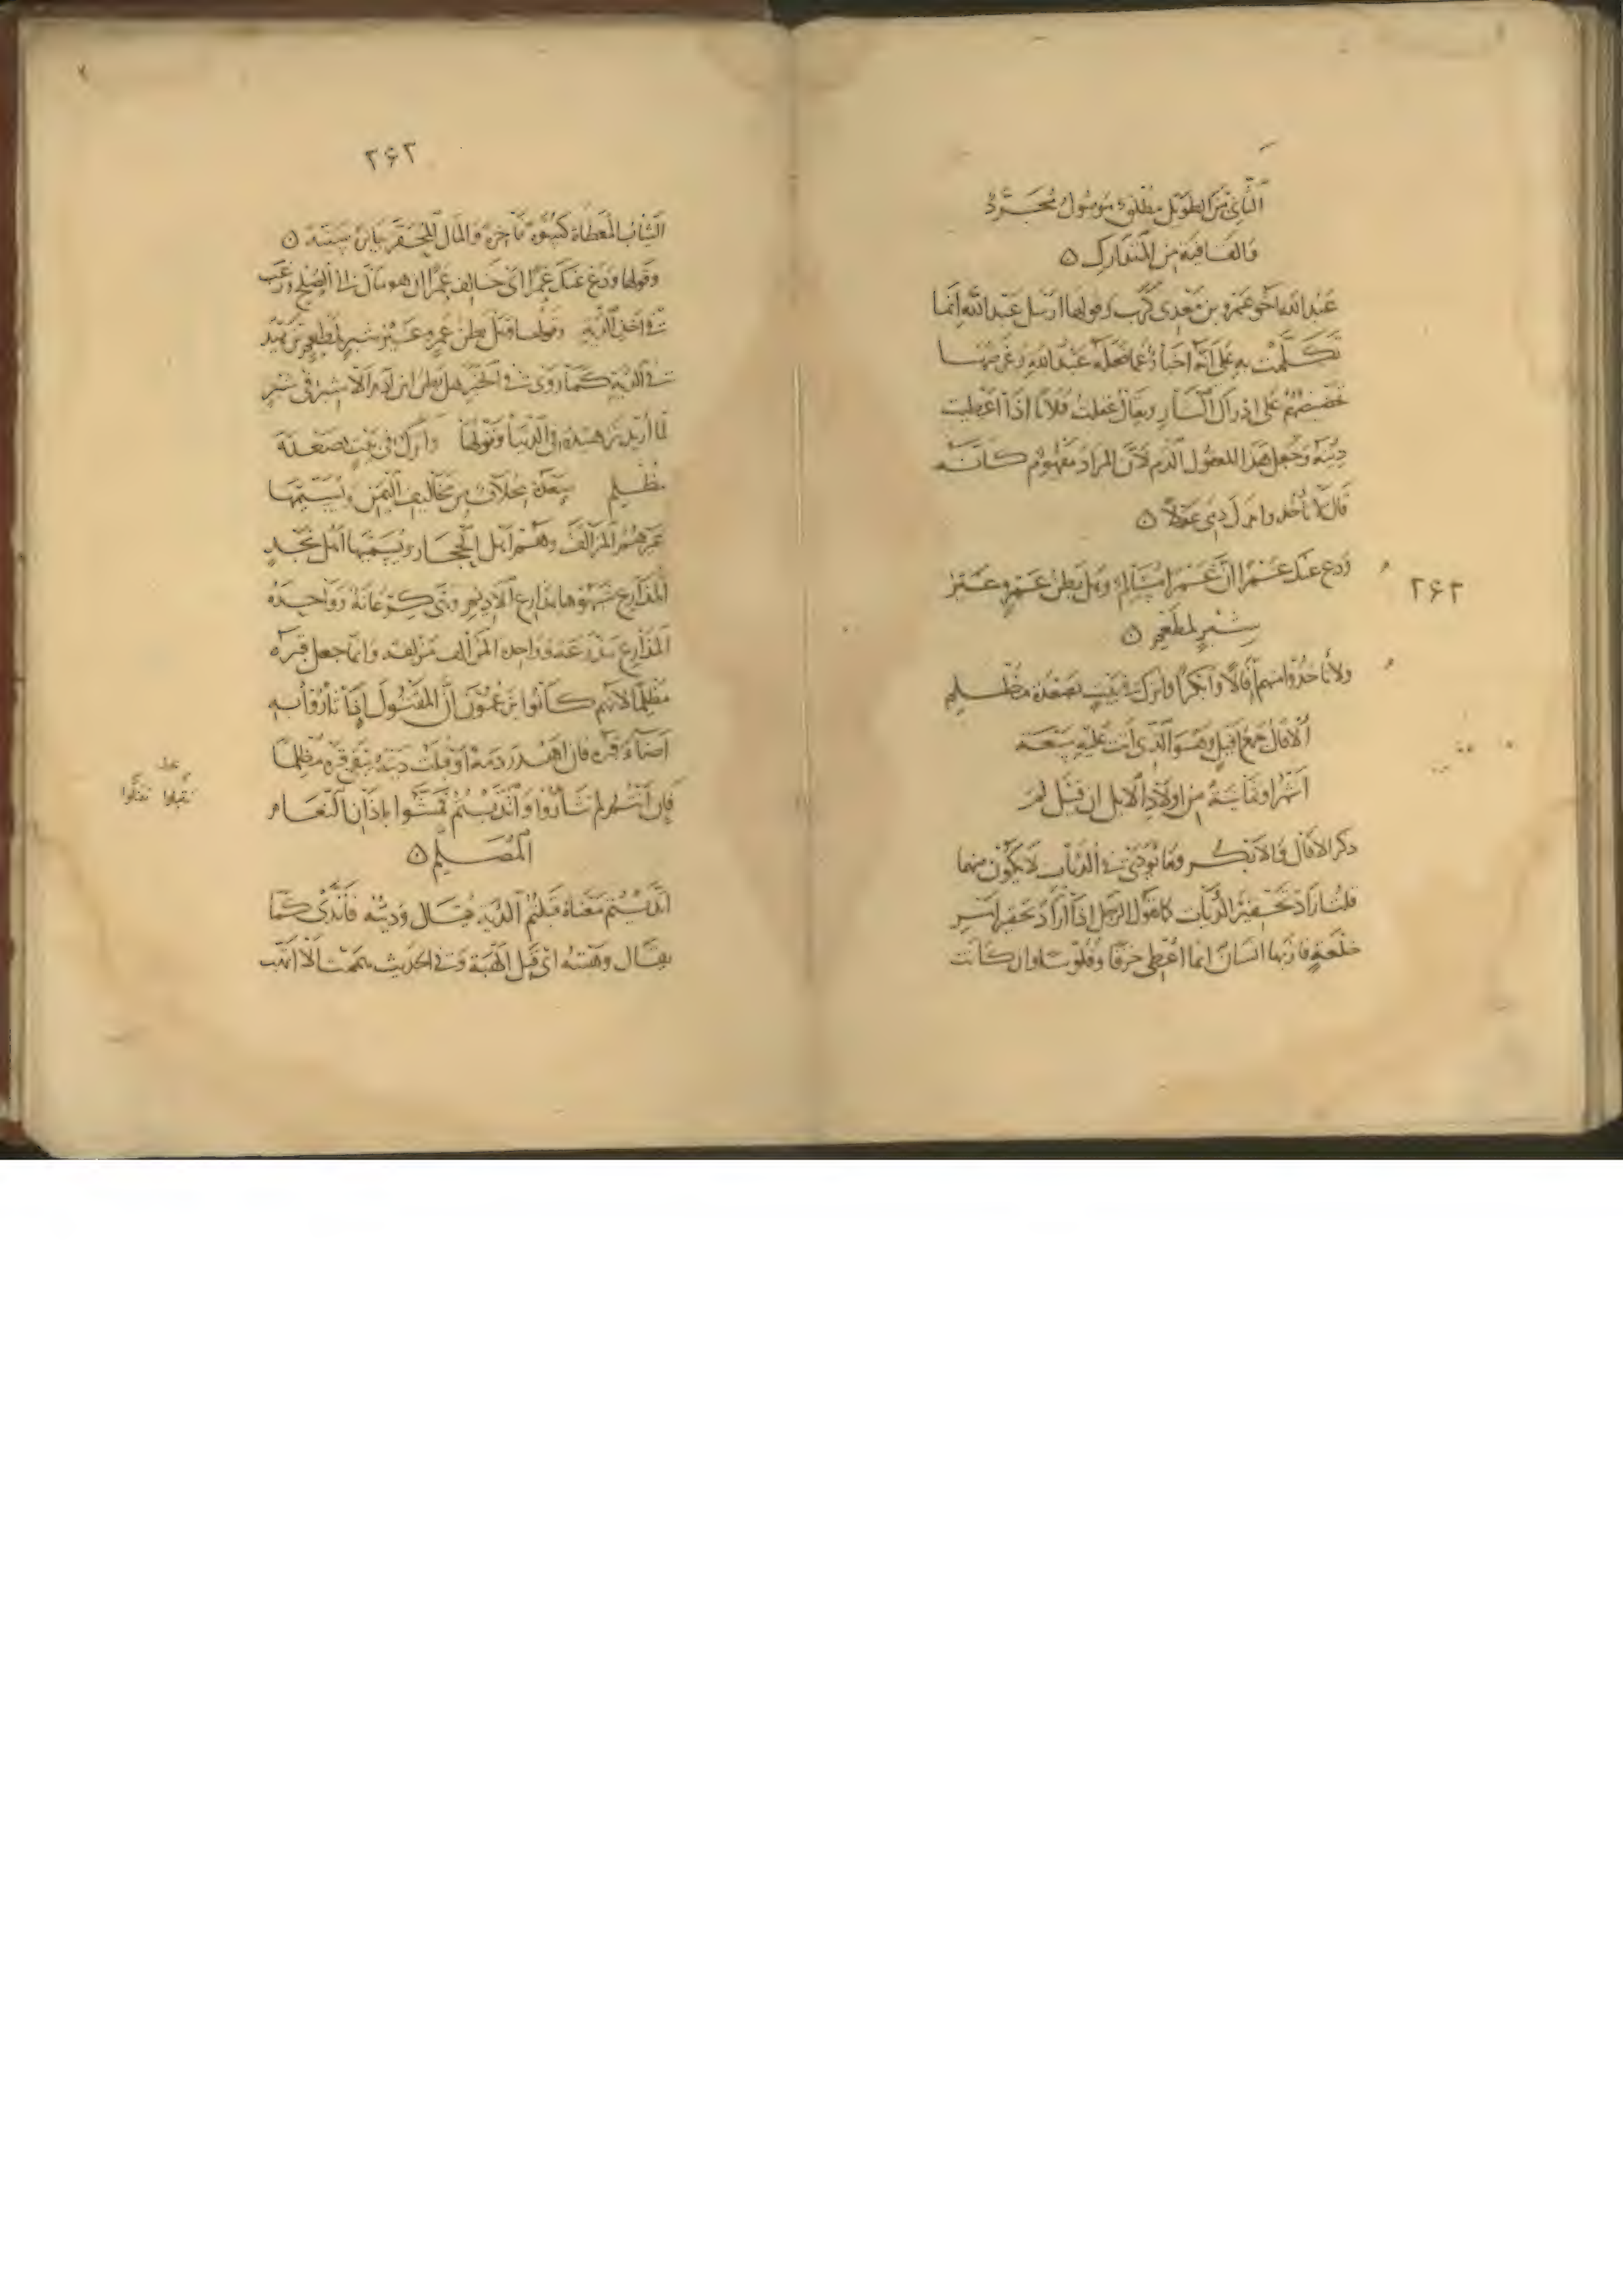 الثَّانِي مِنَ الطَّوِيلِ مُطْلَقٌ مَوْصُولٌ مُجَرَّدٌ
وَالْقَافِيَةُ مِنَ الْمُتَدَارِكِ ن
عَبْدُ الله أخو عَمْرِو بن مَعْدِي كَرِب وقولها أرسل عبد الله إنما
تكلّمت به على أنه إخبار عمّا فعله عبد الله وغرضها
تحضيضهم على إدراك الثأر ويقال عقلت فلانا إذا أعطيت
ديته وجعل هذا المفعول الدم لأن المراد مفهوم كأنه
قال لا تأخذوا بدل دمي عقلاً ن
ودع عنك عمرا إنّ عمرا مسالم وهل بطن عمرو غير
شبر لمطعم ن
٢۶٢
ولا تأخذوا منهم إفالا وأبكرا وأترك في بيت بصعدة مظلم
الإفال جمع أفيل وهو الذي أتت عليه سبعة
أشهر أو ثمانية من أولاد الإبل ان قيل لم
ذكر الإفال والأبكر وما يؤدّى في الديات لا يكون منهما
قلنا أراد تحقير الديات كما يقول الرجل إذا أراد تحقير أمر
خلعة فاز بها انسان انما أعطي خرقا وفلوسا وان كانت
٢۶٣
الثياب المعطاة كسوة فاخرة والمال المحتقر بابن سنة ن
وقولها ودع عنك عمرا أي خالف عمرا ان هو مال في الى الصلح ورغب
في أخذ الدية وقولها فهل بطن عمرو غير شبر لمطعم تزهيد
في الدية كما روى في الخبر هل بطن ابن آدم الا شبر في شبر
لما أريد تزهيده في الدنيا وقولها وأترك في بيت بصعدة
مظلم صعدة مخلاف من مخاليف اليمن ويسميها
غيرهم المزالف وهم أهل الحجاز ويسميها أهل نجد
المذارع شبهوها بمذارع الأديم وهي كرعانه وواحدة
المذارع مذرعة وواحد المزالف مزلفة وانما جعل قبره
مظلما لأنهم كانوا يزعمون أن المقتول إذا ثأروا به
أضاء قبره فان أهدر دمه أو قبلت ديته بقي قبره مظلما
فإن أنتم لم تثأروا واتّديتم فمشّوا بآذان النعام
المصلّم ن
تقبلوا تقتلوا
اتّديتم معناه قبلتم الدية يقال وديته فاتّدى كما
يقال وهبته أي قبل الهبة وفي الحديث هممت ألا أتّهب